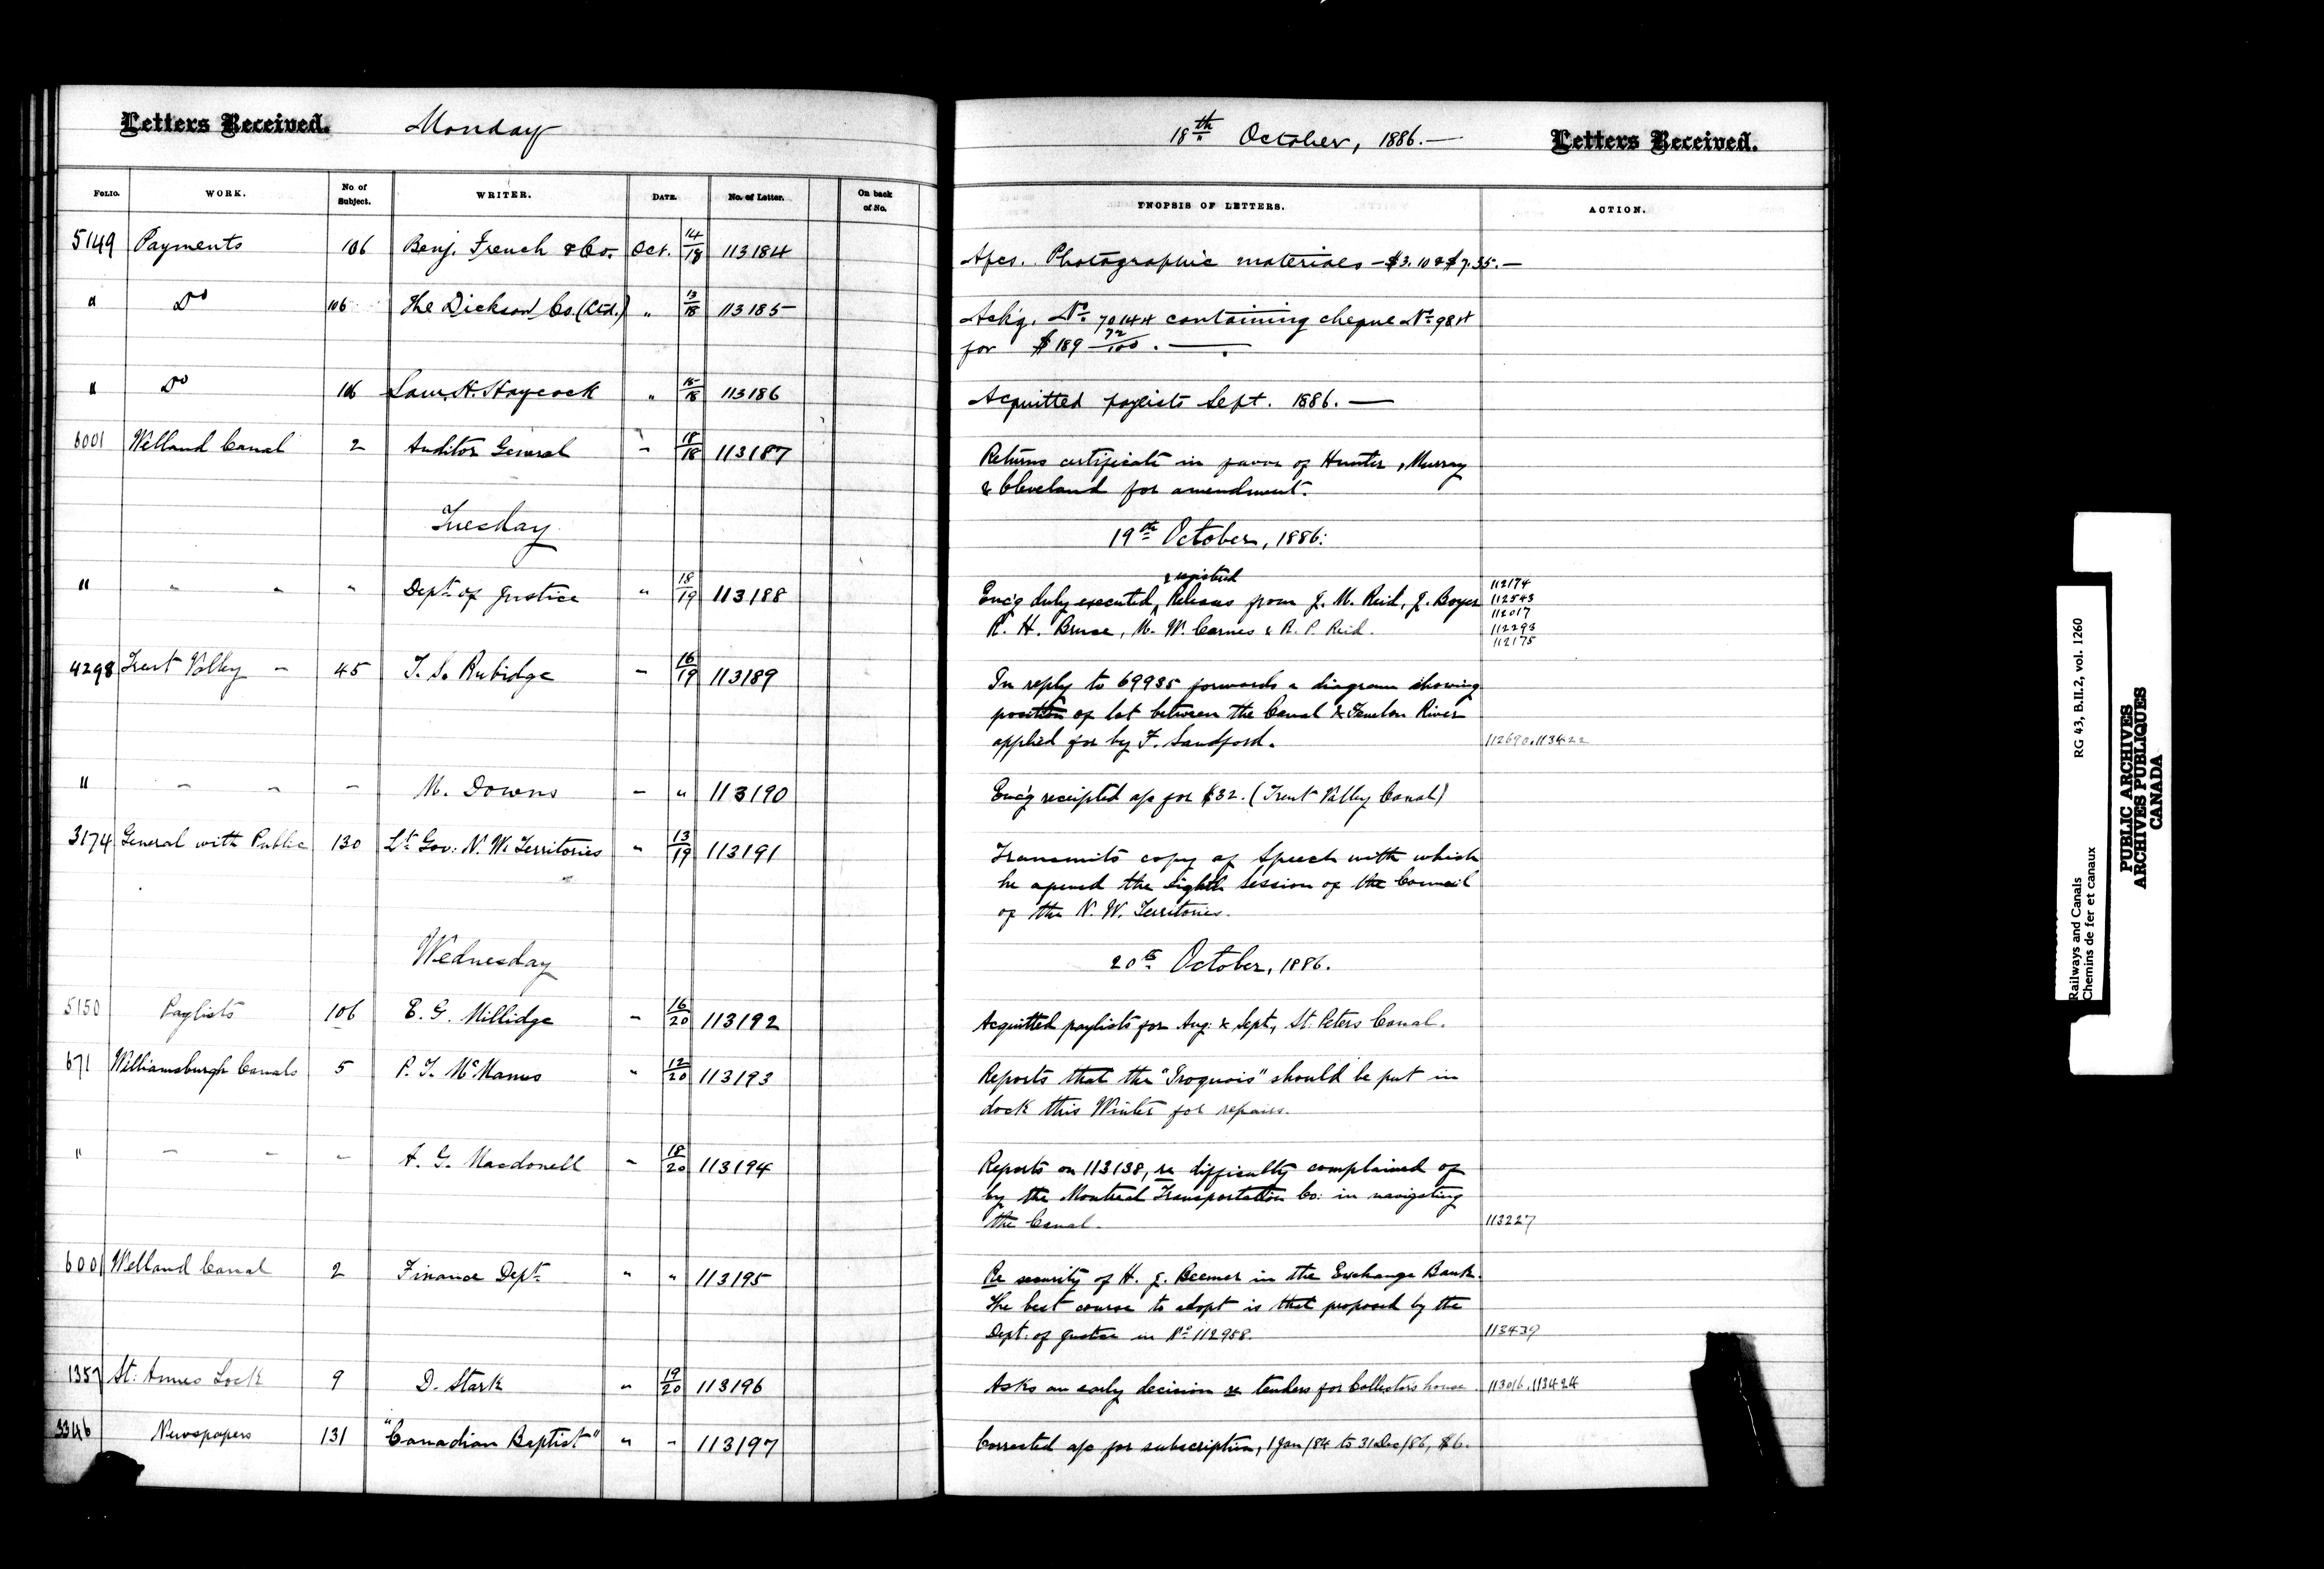 Letters Received. Monday
FOLIO. WORK. No of Subject. WRITER. DATE. No. of Letter. On back of No.
5149 Payments 106 Benj. French & Co. Oct. 14/18 113184
" Do 106 The Dickson Co. (Ltd.) " 13/18 113185
" Do 106 H. Haycock " 15/18 113186
6001 Welland Canal 2 Auditor General " 18/18 113187
Tuesday
" " " " Dept. of Justice " 18/19 113188
4298 Trent Valley " 45 T. S. Rubidge " 16/19 113189
" " " " M. Downs " " 113190
3174 General with Public 130 Lt. Gov: N. W. Territories " 13/19 113191
Wednesday
5150 Paylists 106 E. G. Millidge " 16/20 113192
671 Williamsburgh Canals 5 P. T. McManus " 12/20 113193
" " " " A. G. Macdonell " 18/20 113194
6001 Welland Canal 2 Finance Dept. " " 113195
1357 St. Annes Lock 9 D. Stark " 19/20 113196
3346 Newspapers 131 "Canadian Baptist" " " 113197
18th October, 1886.— Letters Received.
YNOPSIS OF LETTERS. ACTION.
Photographic materials — $3.10 & $7.35.—
Ackg. No. 70144 containing cheque No. 984
for $189 72/100.—
Acquitted paylists Sept. 1886.—
Returns certificate in favor of Hunter, Murray
& Cleveland for amendment.
19th October, 1886.
& registered
Enc'g duly executed, Releases from J. M. Reid, J. Boyer
R. H. Bruce, M. W. Carnes & R. P. Reid.
112174
112543
112017
112293
112175
In reply to 69935 forwards a diagram showing
position of lot between the Canal & Fenelon River
applied for by F. Sandford. 112690.113422
Enc'g receipted a/c for $32. (Trent Valley Canal)
Transmits copy of Speech with which
he opened the eighth session of the Council
of the N. W. Territories.
20th October, 1886.
Acquitted paylists for Aug: & Sept, St. Peters Canal.
Reports that the "Iroquois" should be put in
dock this Winter for repairs.
Reports on 113138, re difficulty complained of
by the Montreal Transportation Co: in navigating
the Canal. 113227
Re security of H. J. Beemer in the Exchange Bank.
The best course to adopt is that proposed by the
Dept. of Justice in No. 112958. 113439
Asks an early decision re tenders for Collectors house. 113016.113424
Corrected a/c for subscription, 1 Jan/84 to 31 Dec/86, $6.
Railways and Canals RG 43, B.II.2, vol. 1260
Chemins de fer et canaux
PUBLIC ARCHIVES
ARCHIVES PUBLIQUES
CANADA